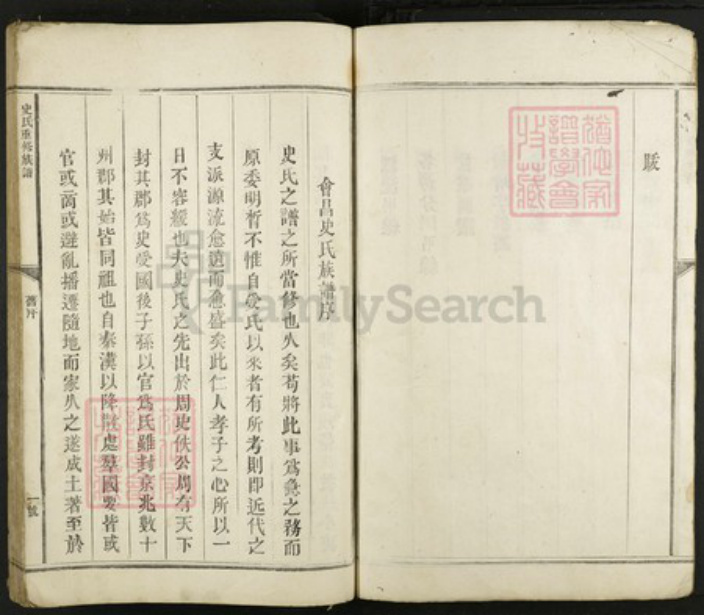 跋
會昌史氏族譜序
史氏之譜之所當修也久矣苟將此事爲急之務而
原委明晳不惟自受氏以來者有所考則即近代之
支派源流愈遠而愈盛矣此仁人孝子之心所以一
日不容緩也夫史氏之先出於周史佚公周有天下
封其郡爲史爰國後子孫以官爲氏雖封京兆數十
州郡其始皆同祖也自秦漢以降散處羣國要皆或
官或商或避亂播遷隨地而家久之遂成土著至於
史氏重修族譜
舊序
一號
FamilySearch